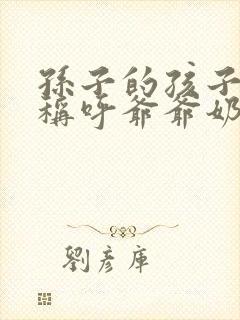 孫子的孩子
稱呼爺爺奶
劉彥庫